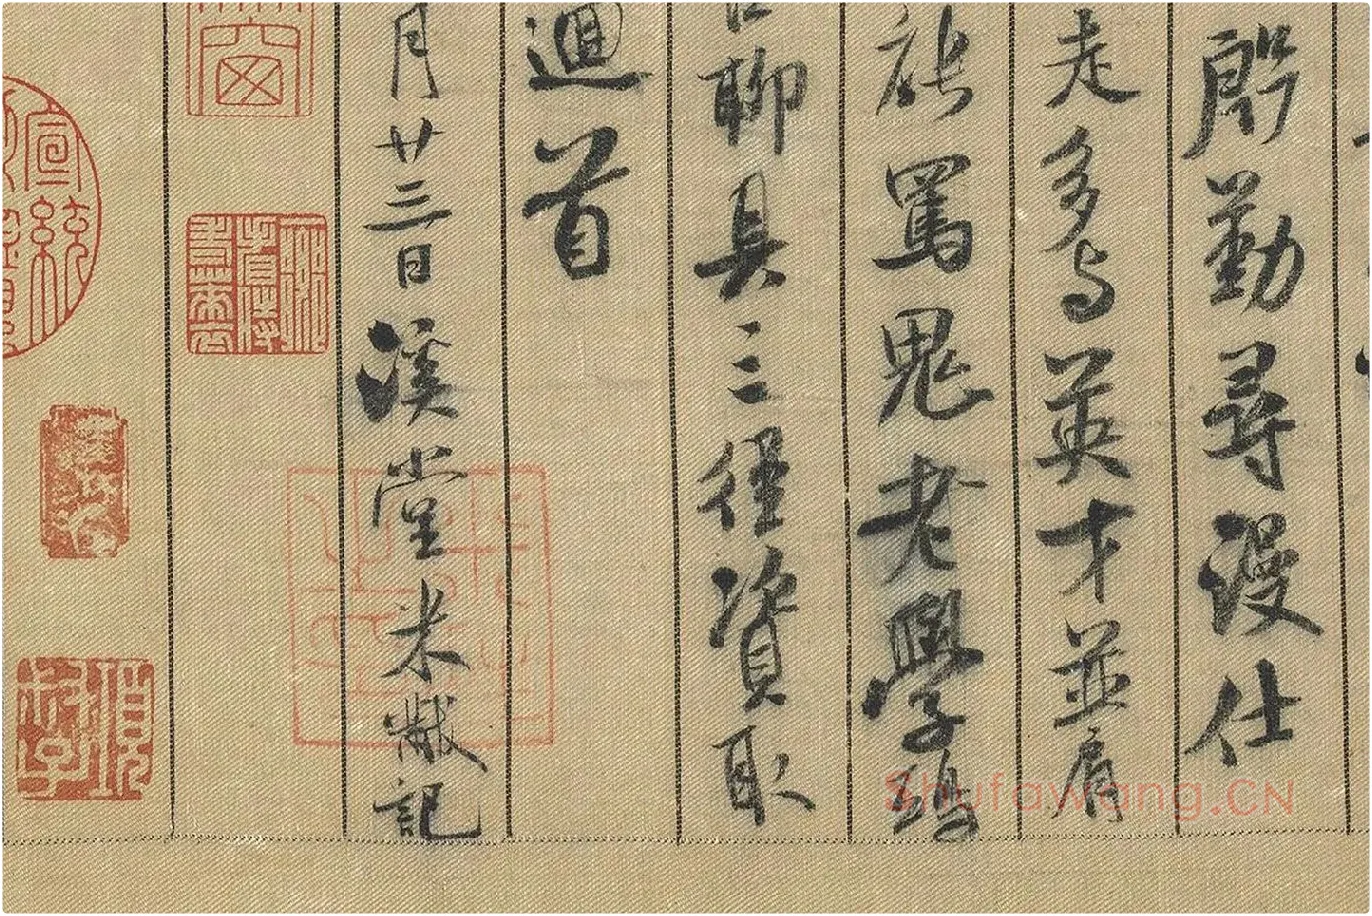 殷勤尋漫仕
走多与英才並肩
能罵鬼老學鴟
聊具三徑資取
迴首
月廿三日溪堂米黻記
宣統
Shufawang.CN